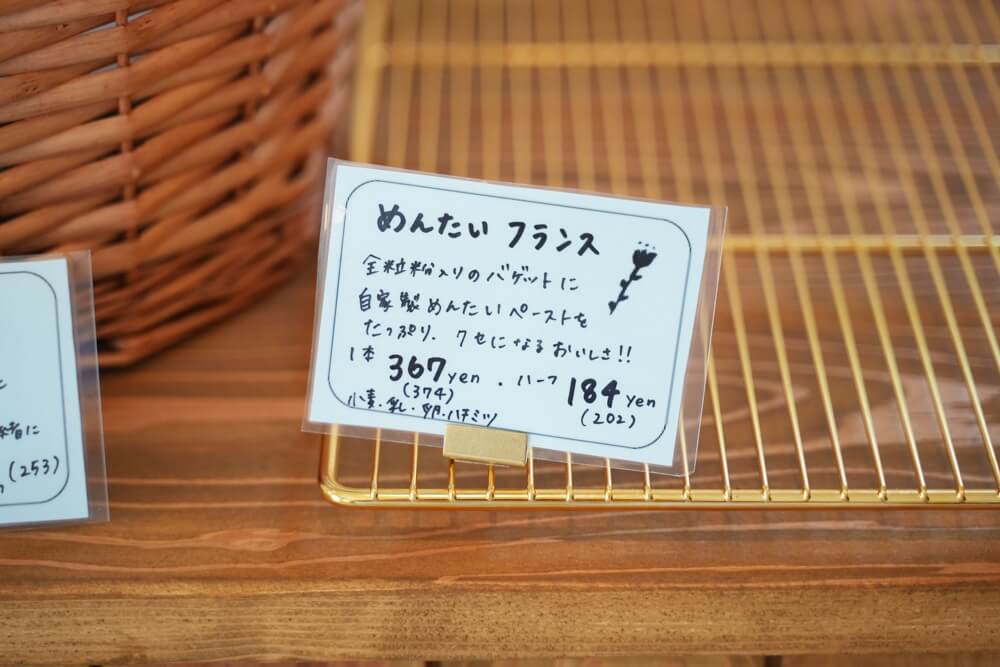 めんたい フランス
全粒粉入りのバゲットに
自家製めんたいペーストを
たっぷり. クセになるおいしさ!!
1本 367yen . ハーフ 184yen
(374) (202)
小麦・乳・卵・ハチミツ
緒に
(253)